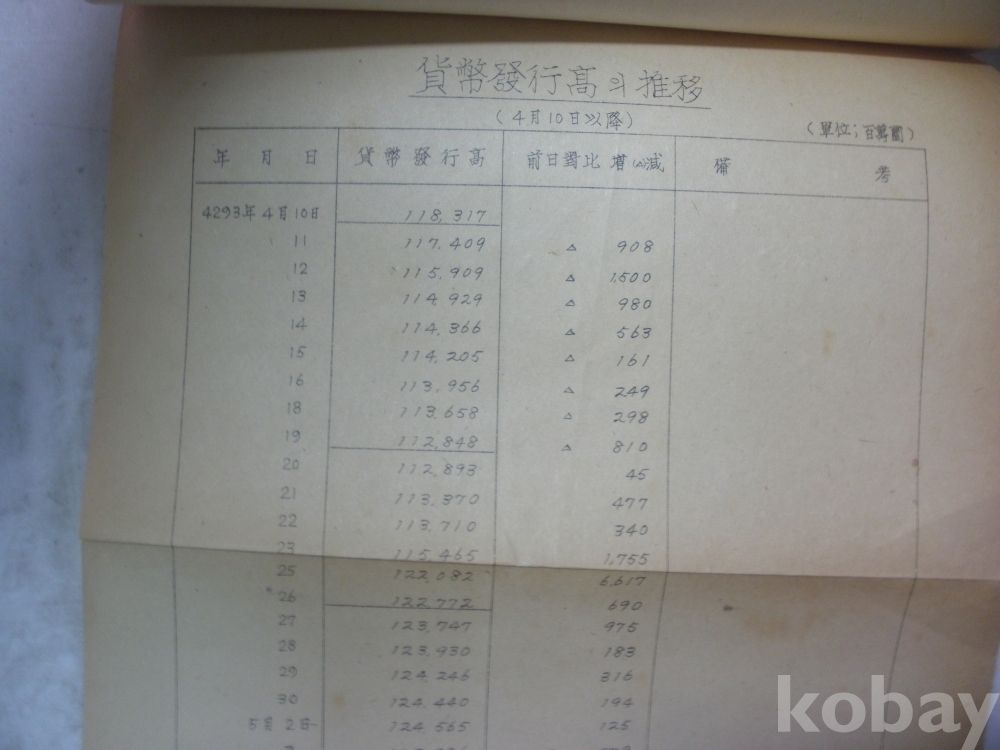 貨幣發行高의推移
(4月10日以降)
(單位;百萬圜)
年 月 日 貨幣發行高 前日對比 增(△)減 備 考
4293年4月10日 118,317
11 117,409 △ 908
12 115,909 △ 1,500
13 114,929 △ 980
14 114,366 △ 563
15 114,205 △ 161
16 113,956 △ 249
18 113,658 △ 298
19 112,848 △ 810
20 112,893 45
21 113,370 477
22 113,710 340
23 115,465 1,755
25 122,082 6,617
26 122,772 690
27 123,747 975
28 123,930 183
29 124,246 316
30 124,440 194
5月2日 124,565 125
kobay